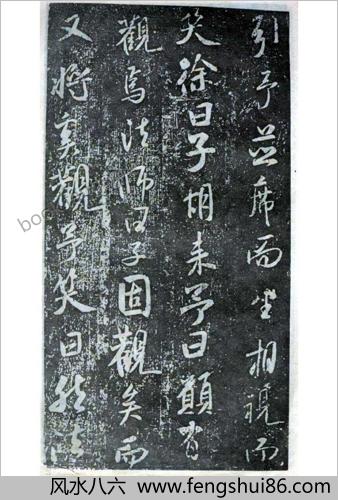 引予並席而坐相視而
笑徐曰子胡來予曰願有
觀焉法師曰子固觀矣而
又將奚觀予笑曰然法
风水八六 www.fengshui86.com